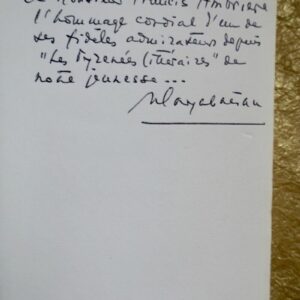 à Monsieur Francis Ambrière
l'hommage cordial d'un de
ses fidèles admirateurs depuis
"Les Pyrénées littéraires" de
notre jeunesse ...